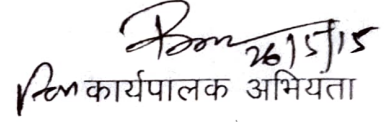 26/5/15
कार्यपालक अभियता